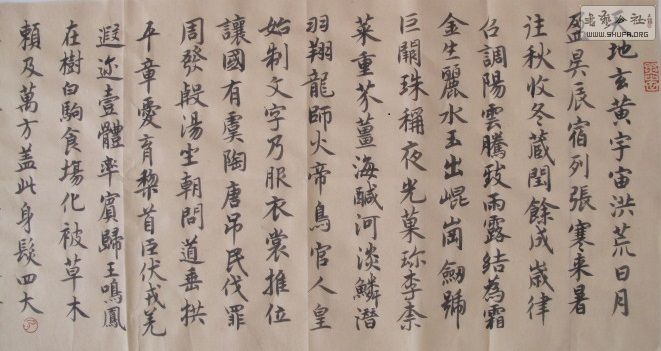 天地玄黄宇宙洪荒日月
盈昃辰宿列張寒来暑
往秋收冬蔵閏餘成歲律
召調陽雲騰致雨露結為霜
金生麗水玉出崐崗劒號
巨闕珠稱夜光菓珎李柰
菜重芥薑海鹹河淡鱗潛
羽翔龍師火帝鳥官人皇
始制文字乃服衣裳推位
讓國有虞陶唐吊民伐罪
周發殷湯坐朝問道垂拱
平章愛育黎首臣伏戎羌
遐迩壹體率賓歸王鳴鳳
在樹白駒食塲化被草木
頼及萬方盖此身髮四大
WWW.SHUFA.ORG